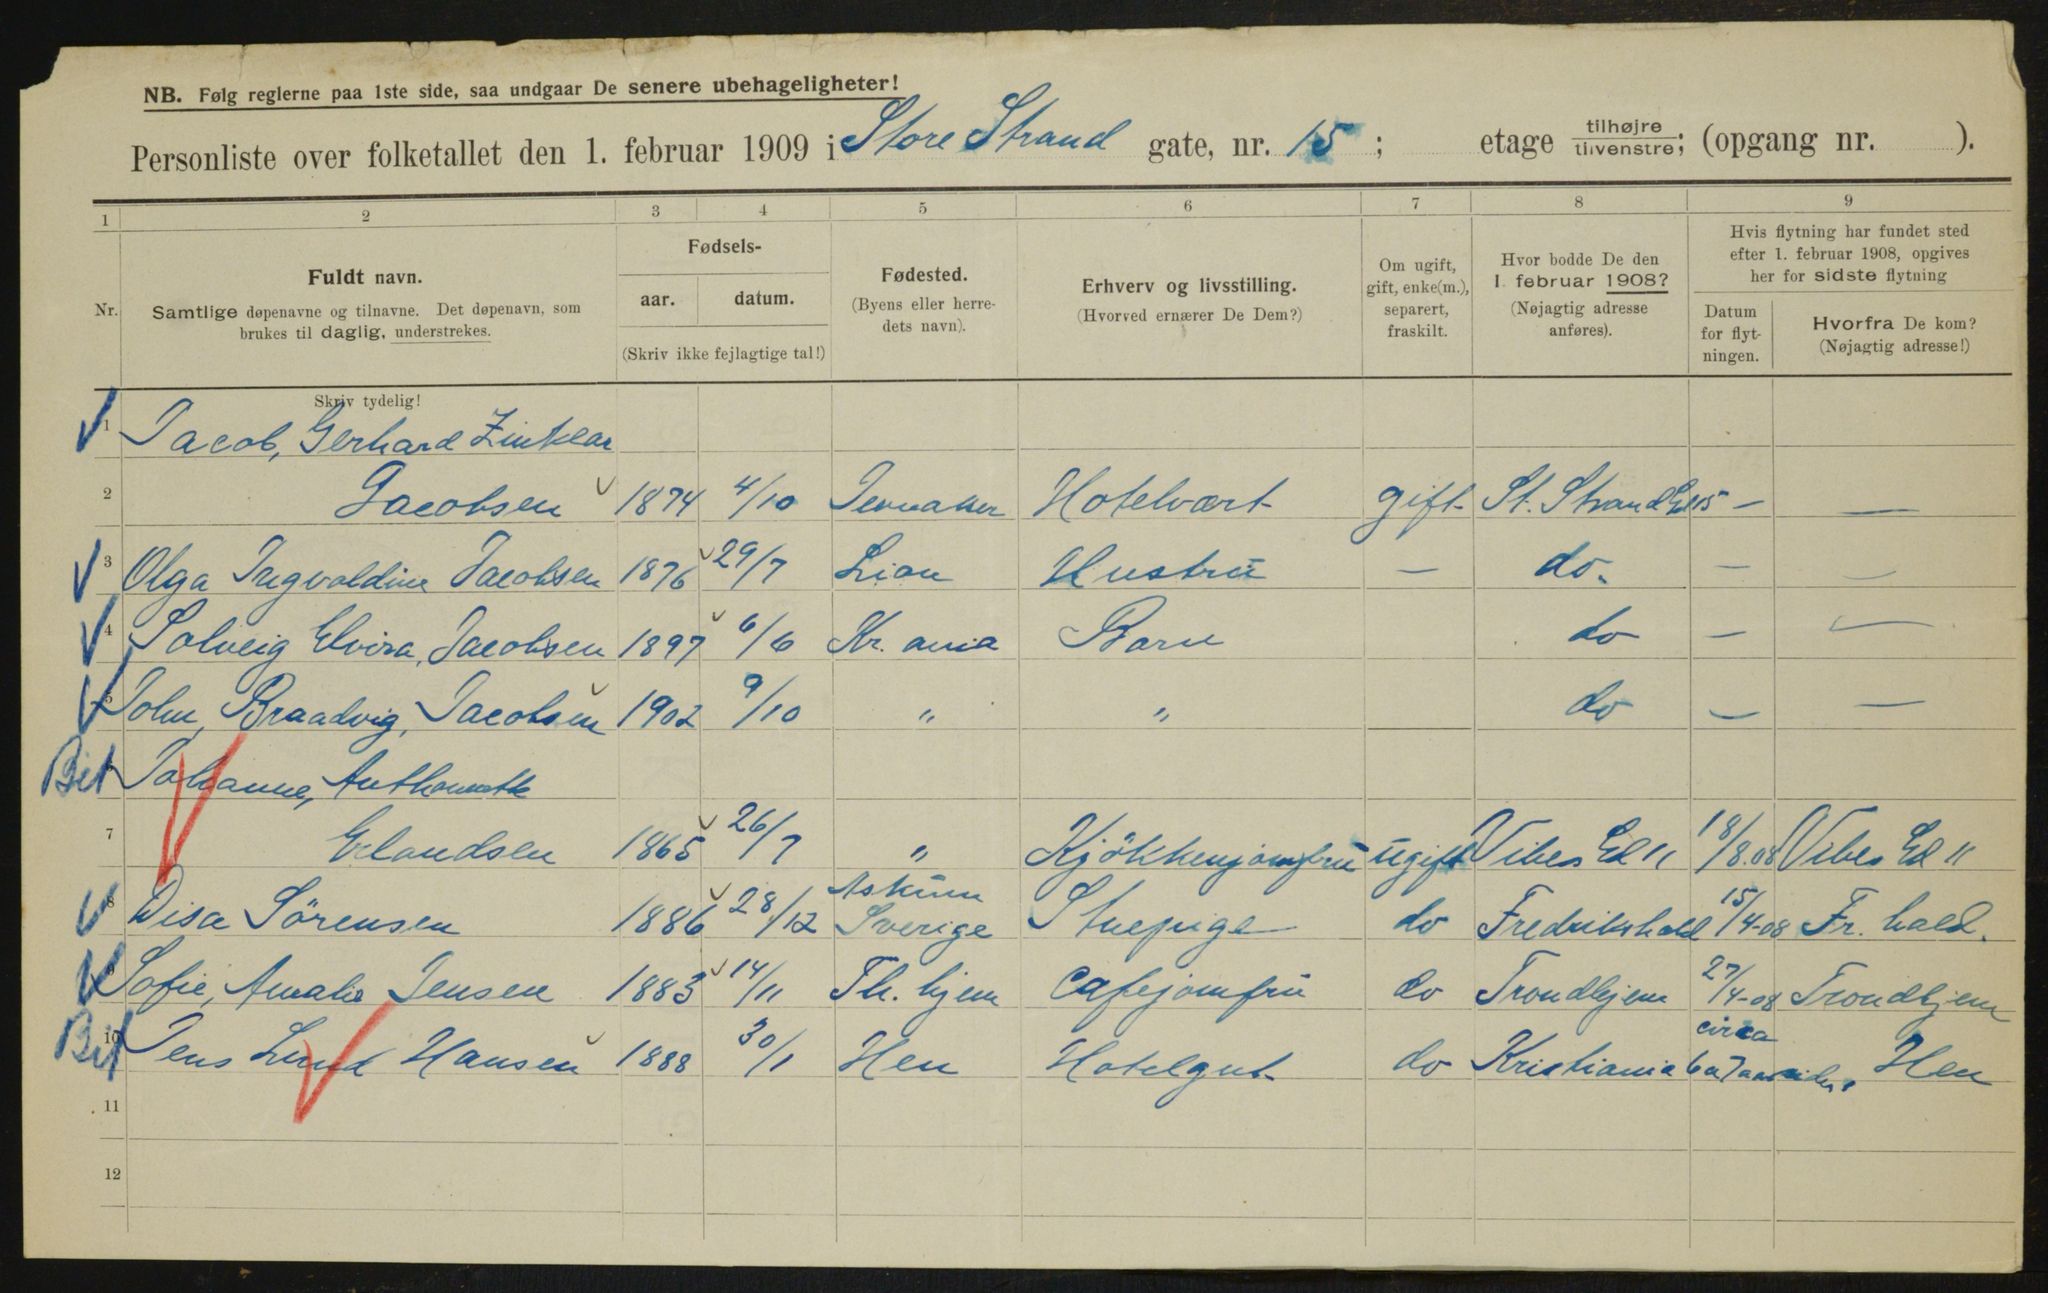 NB. Følg reglerne paa 1ste side, saa undgaar De senere ubehageligheter!
Personliste over folketallet den 1. februar 1909 i Store Strand gate, nr. 15; etage tilhøjre tilvenstre; (opgang nr. ).
1 2 3 4 5 6 7 8 9
Nr.
Fuldt navn.
Samtlige døpenavne og tilnavne. Det døpenavn, som
brukes til daglig, understrekes.
Fødsels-
aar. datum.
(Skriv ikke fejlagtige tal!)
Fødested.
(Byens eller herre-
dets navn).
Erhverv og livsstilling.
(Hvorved ernærer De Dem?)
Om ugift,
gift, enke(m.),
separert,
fraskilt.
Hvor bodde De den
1. februar 1908?
(Nøjagtig adresse
anføres).
Hvis flytning har fundet sted
efter 1. februar 1908, opgives
her for sidste flytning
Datum
for flyt-
ningen.
Hvorfra De kom?
(Nøjagtig adresse!)
Skriv tydelig!
1 Jacob, Gerhard Zinklar
2 Jacobsen 1874 4/10 Jevnaker Hotelvært gift St. Strand Gd 15 — —
3 Olga Ingvoldine Jacobsen 1876 29/7 Lier Hustru — do. — —
4 Solveig Elvira, Jacobsen 1897 6/6 Kr. ania Barn do — —
5 John, Braadvig, Jacobsen 1902 9/10 " " do — —
Bet 6 Johanne, Anthonette
7 Erlandsen 1865 26/7 " Kjökkenjomfru ugift Vibes Gd 11 18/8.08 Vibes Gd 11
8 Disa Sörensen 1886 28/12 Askum Sverige Stuepige do Fredrikshald 15/4-08 Fr. hald.
9 Sofie, Amalie Jensen 1883 14/11 Th. hjem Cafejomfru do Trondhjem 27/4-08 Trondhjem
Bet 10 Jens Lund Hansen 1888 30/1 Hen Hotelgut do Kristiania circa 6 a 7 aar siden, Hen
11
12